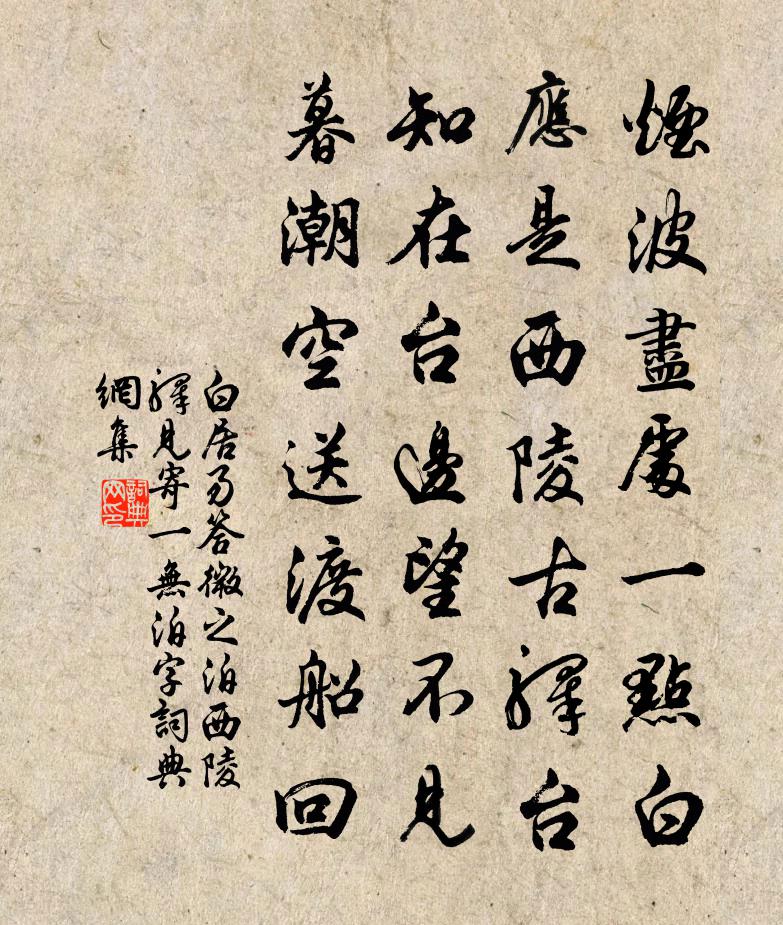 煙波盡處一點白
應是西陵古驛台
知在台邊望不見
暮潮空送渡船回
白居易答微之泊西陵
驛見寄一無泊字詞典
網集
詞典
网印